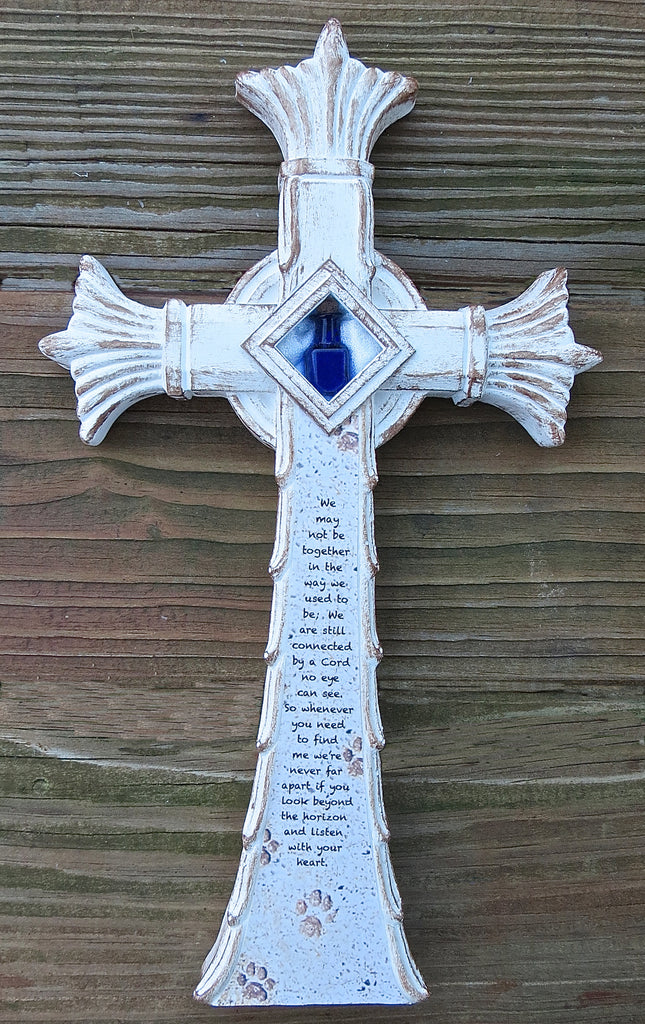 We
may
not be
together
in the
way we
used to
be; We
are still
connected
by a Cord
no eye
can see.
So whenever
you need
to find
me we're
never far
apart if you
Look beyond
the horizon
and listen
with your
heart.